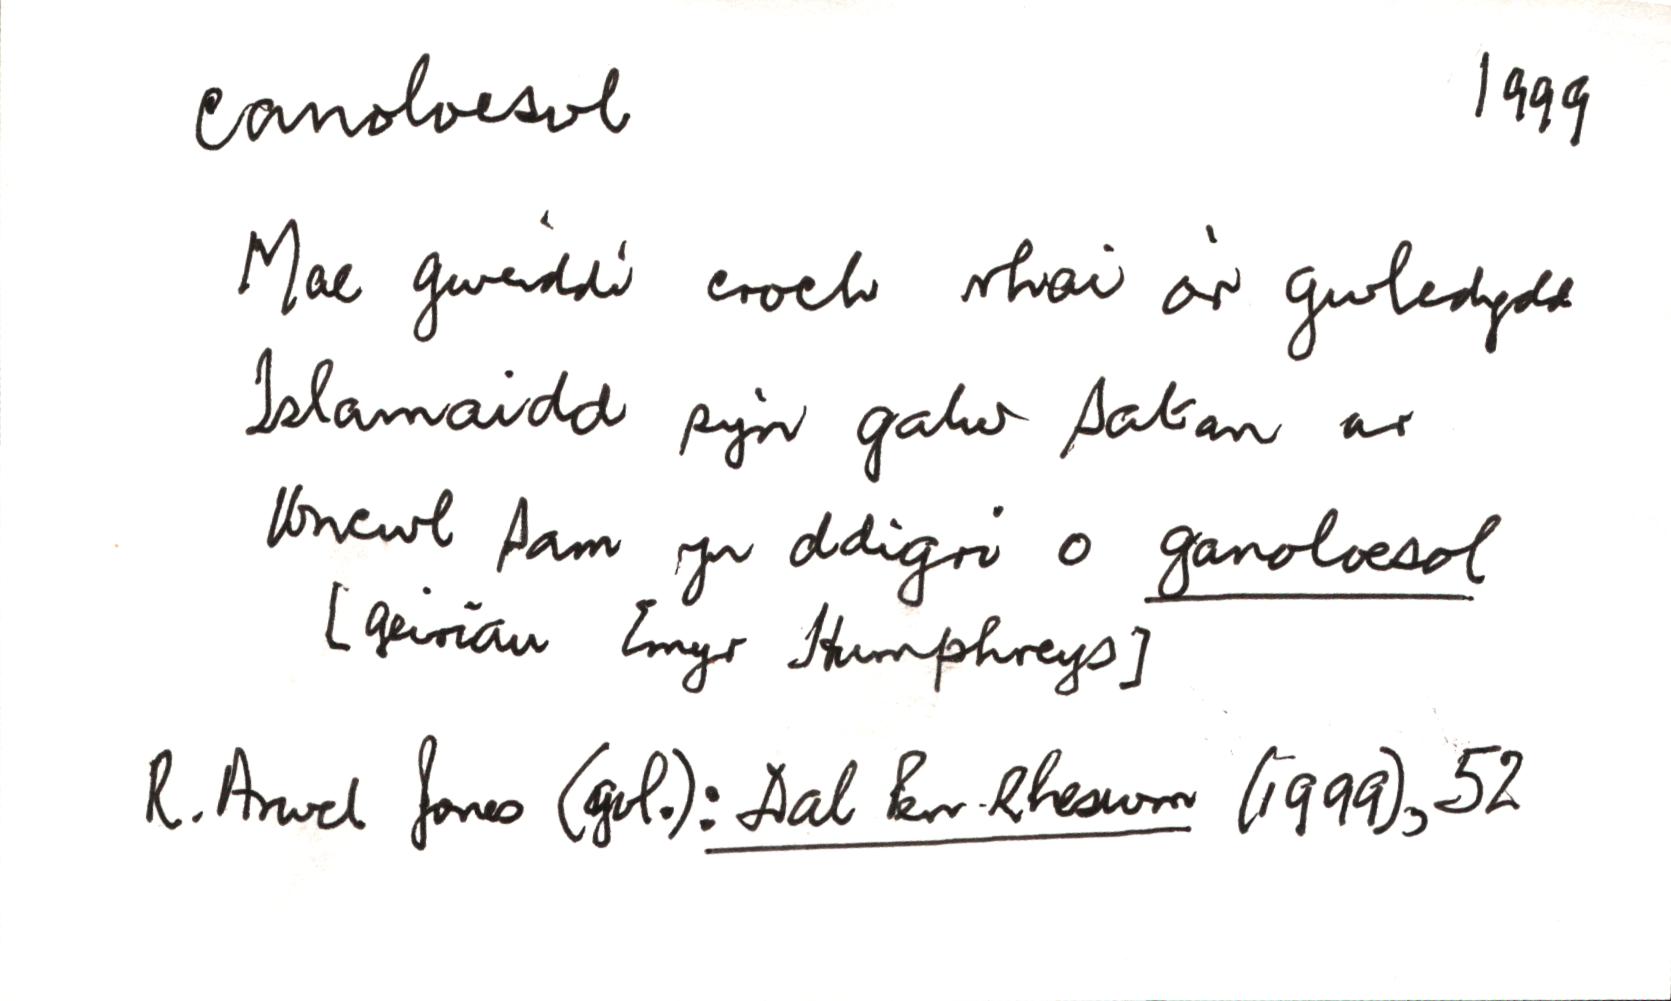 canoloesol 1999
Mae gweiddi croch rhai o'r gwledydd
Islamaidd sy'n galw Satan ar
Wncwl Sam yn ddigri o ganoloesol
[geiriau Emyr Humphreys]
R. Arwel Jones (gol.): Dal Pen Rheswm (1999), 52